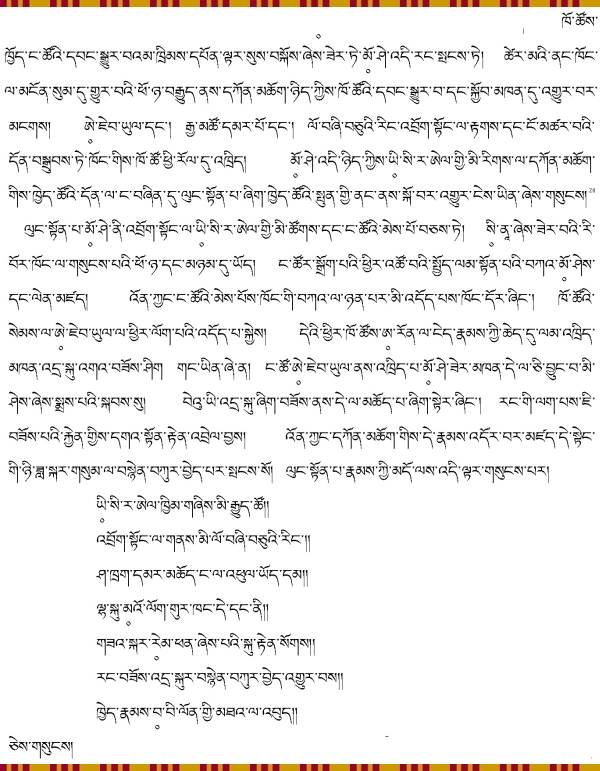 ཁོ་ཚོས་
ཁྱོད་ང་ཚོའི་དབང་སྒྱུར་བའམ་ཁྲིམས་དཔོན་ལྟར་སུས་བསྐོས་ཞེས་ཟེར་ཏེ་མོ་ཤེ་འདི་རང་སྤངས་ཏེ། ཚེར་མའི་ནང་ཁོང་
ལ་མངོན་སུམ་དུ་གྱུར་བའི་ཕོ་ཉ་བརྒྱུད་ནས་དཀོན་མཆོག་ཉིད་ཀྱིས་ཁོ་ཚོའི་དབང་སྒྱུར་བ་དང་སྐྱོབ་མཁན་དུ་འགྱུར་བར་
མངགས། ཨེ་ཇེབ་ཡུལ་དང་། རྒྱ་མཚོ་དམར་པོ་དང་། ལོ་བཞི་བཅུའི་རིང་འབྲོག་སྟོང་ལ་རྟགས་དང་ངོ་མཚར་བའི་
དོན་བསྒྲུབས་ཏེ་ཁོང་གིས་ཁོ་ཚོ་ཕྱི་རོལ་དུ་འཁྲིད། མོ་ཤེ་འདི་ཉིད་ཀྱིས་ཡི་སི་ར་ཨེལ་གྱི་མི་རིགས་ལ་དཀོན་མཆོག་
གིས་ཁྱེད་ཚོའི་དོན་ལ་ང་བཞིན་དུ་ལུང་སྟོན་པ་ཞིག་ཁྱེད་ཚོའི་སྤུན་གྱི་ནང་ནས་སློ་བར་འགྱུར་ངེས་ཡིན་ཞེས་གསུངས།
ལུང་སྟོན་པ་མོ་ཤེ་ནི་འབྲོག་སྟོང་ལ་ཡི་སི་ར་ཨེལ་གྱི་མི་ཚོགས་དང་ང་ཚོའི་མེས་པོ་བཅས་ཏེ། སི་ནཱ་ཞེས་ཟེར་བའི་རི་
བོར་ཁོང་ལ་གསུངས་པའི་ཕོ་ཉ་དང་མཉམ་དུ་ཡོད། ང་ཚོར་སྒྲོག་པའི་ཕྱིར་འཚོ་བའི་སྤྱོད་ལམ་སྟོན་པའི་བཀའ་མོ་ཤེས་
དང་ལེན་མཛད། འོན་ཀྱང་ང་ཚོའི་མེས་པོས་ཁོང་གི་བཀའ་ལ་ཉན་པར་མི་འདོད་པས་ཁོང་དོར་ཞིང་། ཁོ་ཚོའི་
སེམས་ལ་ཨེ་ཇེབ་ཡུལ་ལ་ཕྱིར་ལོག་པའི་འདོད་པ་སྐྱེས། དེའི་ཕྱིར་ཁོ་ཚོས་ཨ་རོན་ལ་ངེད་རྣམས་ཀྱི་ཆེད་དུ་ལམ་འཁྲིད་
མཁན་འདྲ་སྐུ་འགའ་བཟོས་ཤིག གང་ཡིན་ཞེ་ན། ང་ཚོ་ཨེ་ཇེབ་ཡུལ་ནས་འཁྲིད་པ་མོ་ཤེ་ཟེར་མཁན་དེ་ལ་ཅི་བྱུང་བ་མི་
ཤེས་ཞེས་སྨྲས་པའི་སྐབས་སུ། བེའུ་ཡི་འདྲ་སྐུ་ཞིག་བཟོས་ནས་དེ་ལ་མཆོད་པ་ཞིག་སྟེར་ཞིང་། རང་གི་ལག་པས་ཇི་
བཟོས་པའི་རྐྱེན་གྱིས་དགའ་སྟོན་རྟེན་འབྲེལ་བྱས། འོན་ཀྱང་དཀོན་མཆོག་གིས་དེ་རྣམས་འདོར་བར་མཛད་དེ་སྟེང་
གི་ཉི་ཟླ་སྐར་གསུམ་ལ་བསྙེན་བཀུར་བྱེད་པར་སྤངས་སོ། ལུང་སྟོན་པ་རྣམས་ཀྱི་མདོ་ལས་འདི་ལྟར་གསུངས་པར།
ཡི་སི་ར་ཨེལ་ཁྱིམ་གཞིས་མི་རྒྱུད་ཚོ།།
འབྲོག་སྟོང་ལ་གནས་མི་ལོ་བཞི་བཅུའི་རིང་།།
ཤ་ཁྲག་དམར་མཆོད་ང་ལ་འཕུལ་ཡོད་དམ།།
ལྷ་སྐུ་མའོ་ལོག་གུར་ཁང་དེ་དང་ནི།།
གཟའ་སྐར་རེམ་ཕན་ཞེས་པའི་སྐུ་རྟེན་སོགས།།
རང་བཟོས་འདྲ་སྐུར་བསྙེན་བཀུར་བྱེད་འགྱུར་བས།།
ཁྱེད་རྣམས་བ་བི་ལོན་གྱི་མཐའ་ལ་འབུད།།
ཅེས་གསུངས།